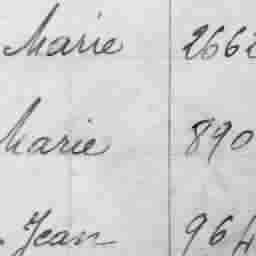 Marie 2662
Marie 890
Jean 964